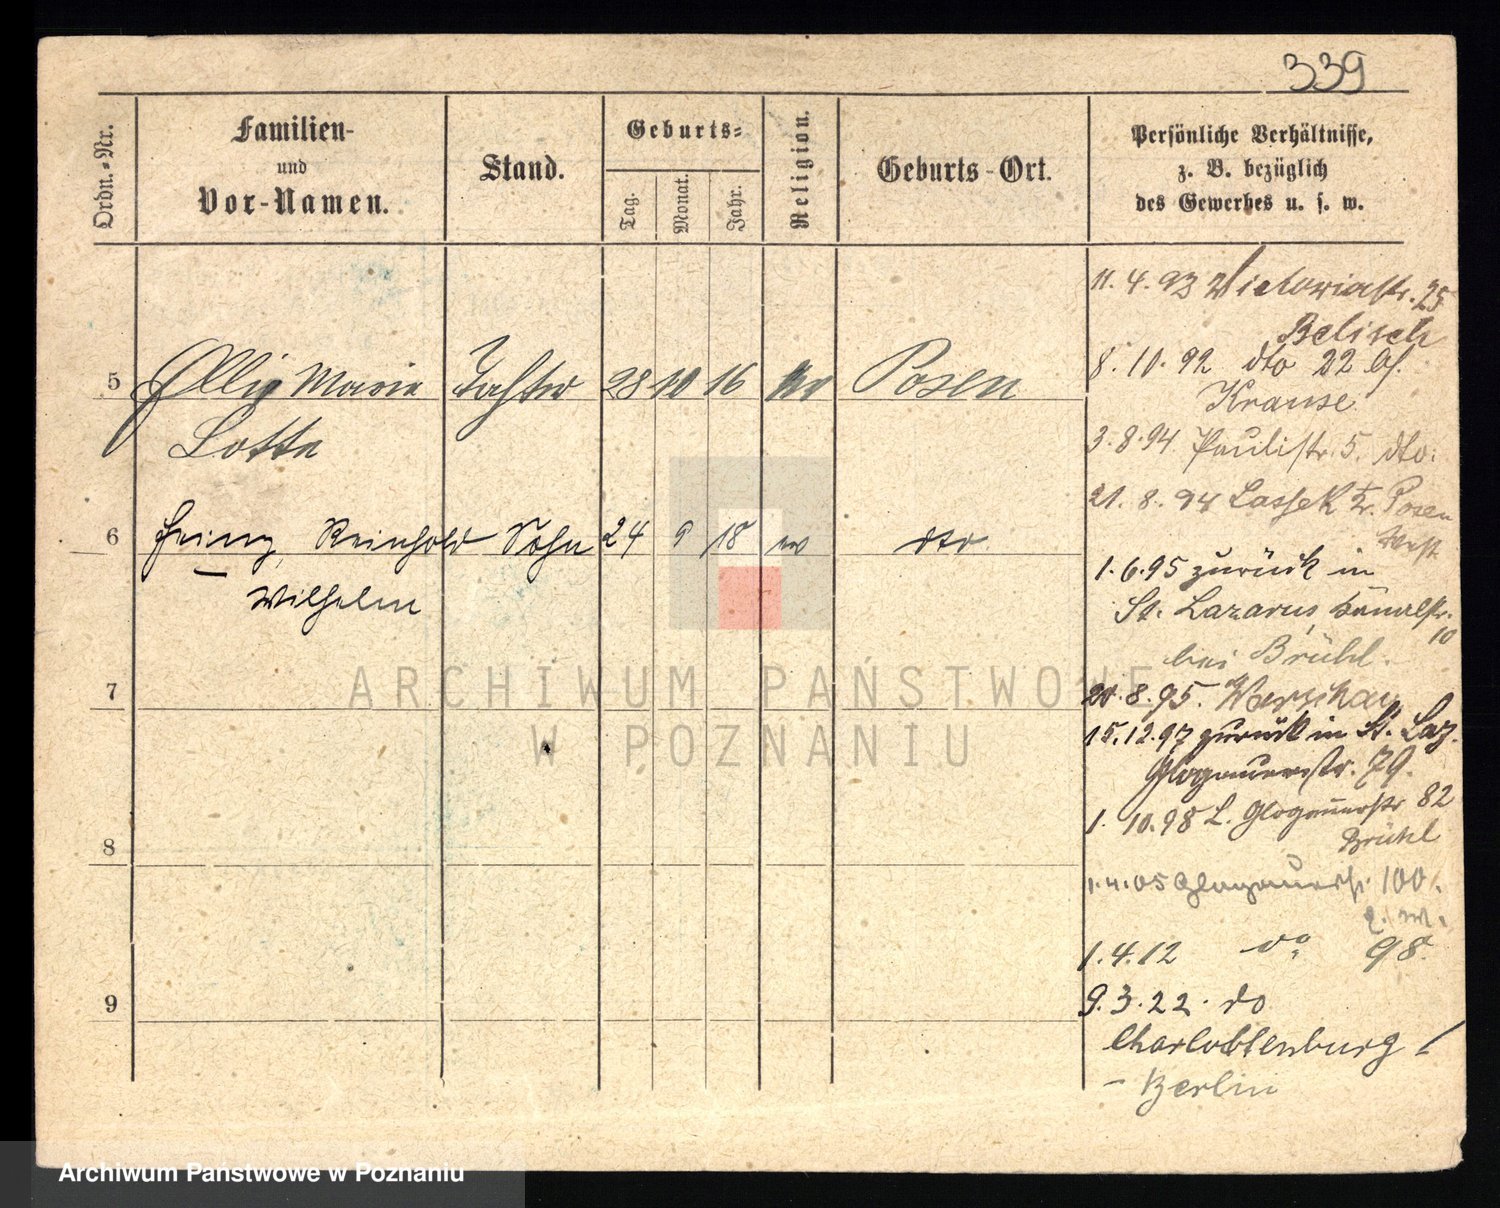 339
Ordn.-Nr.
Familien-
und
Vor-Namen.
Stand.
Geburts-
Tag.
Monat.
Jahr.
Religion.
Geburts-Ort.
Persönliche Verhältnisse,
z. B. bezüglich
des Gewerbes u. s. w.
5 Marie Tochter 28 10 16 Posen
Lotte
6 Heinz, Reinhold Sohn 24 9 18 ev dto
Wilhelm
7
8
9
11. 4. 93 Victoriastr. 25
8. 10. 92 dto 22 bei
Krause
3. 8. 94 Paulistr. 5. dto.
21. 8. 94 Lassek Kr. Posen
West
1. 6. 95 zurück in
St. Lazarus, Kanalstr.
10
bei Brühl.
8. 95. Warschau
15. 12. 97 zurück in St. Laz.
Glogauerstr. 79.
1. 10. 98 L. Glogauerstr 82
Brühl
1. 4. 05 Glogauerstr. 100.
1. 4. 12 do 98.
9. 3. 22. do
Charlottenburg
- Berlin
ARCHIWUM PAŃSTWOWE
W POZNANIU
Archiwum Państwowe w Poznaniu